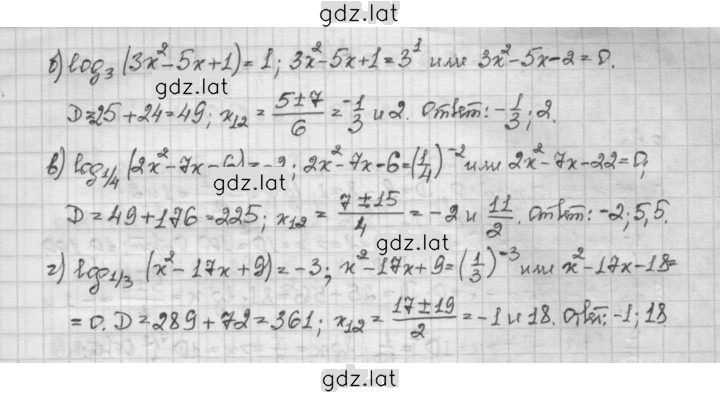 gdz.lat
б) log₃ (3x²-5x+1)=1; 3x²-5x+1=3¹ или 3x²-5x-2=0.
gdz.lat
D=25+24=49; x₁₂ = (5±7)/6 = -1/3 и 2. Ответ: -1/3; 2.
в) log₁/₄ (2x²-7x-6)=-2; 2x²-7x-6=(1/4)⁻² или 2x²-7x-22=0;
gdz.lat
D=49+176=225; x₁₂ = (7±15)/4 = -2 и 11/2. Ответ: -2; 5,5.
gdz.lat
г) log₁/₃ (x²-17x+9)=-3; x²-17x+9=(1/3)⁻³ или x²-17x-18=
=0. D=289+72=361; x₁₂ = (17±19)/2 = -1 и 18. Ответ: -1; 18
gdz.lat